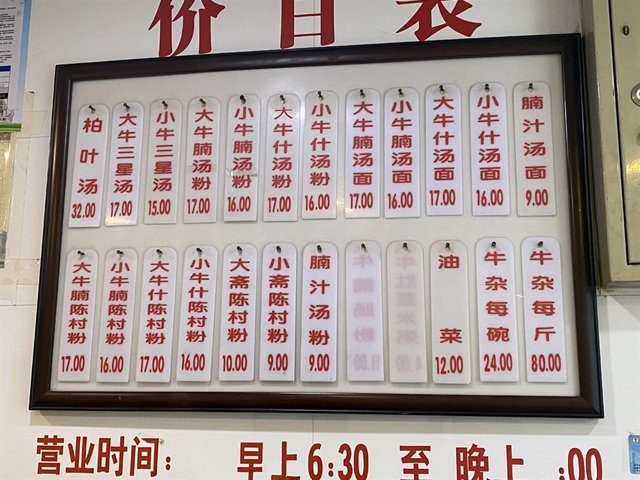 价目表
柏叶汤 32.00
大牛三星汤 17.00
小牛三星汤 15.00
大牛腩汤粉 17.00
小牛腩汤粉 16.00
大牛什汤粉 17.00
小牛什汤粉 16.00
大牛腩汤面 17.00
小牛腩汤面 16.00
大牛什汤面 17.00
小牛什汤面 16.00
腩汁汤面 9.00
大牛腩陈村粉 17.00
小牛腩陈村粉 16.00
大牛什陈村粉 17.00
小牛什陈村粉 16.00
大斋陈村粉 10.00
小斋陈村粉 9.00
腩汁汤粉 9.00
牛腩肠粉 11.00
油菜 12.00
牛杂每碗 24.00
牛杂每斤 80.00
营业时间： 早上6:30 至 晚上 :00